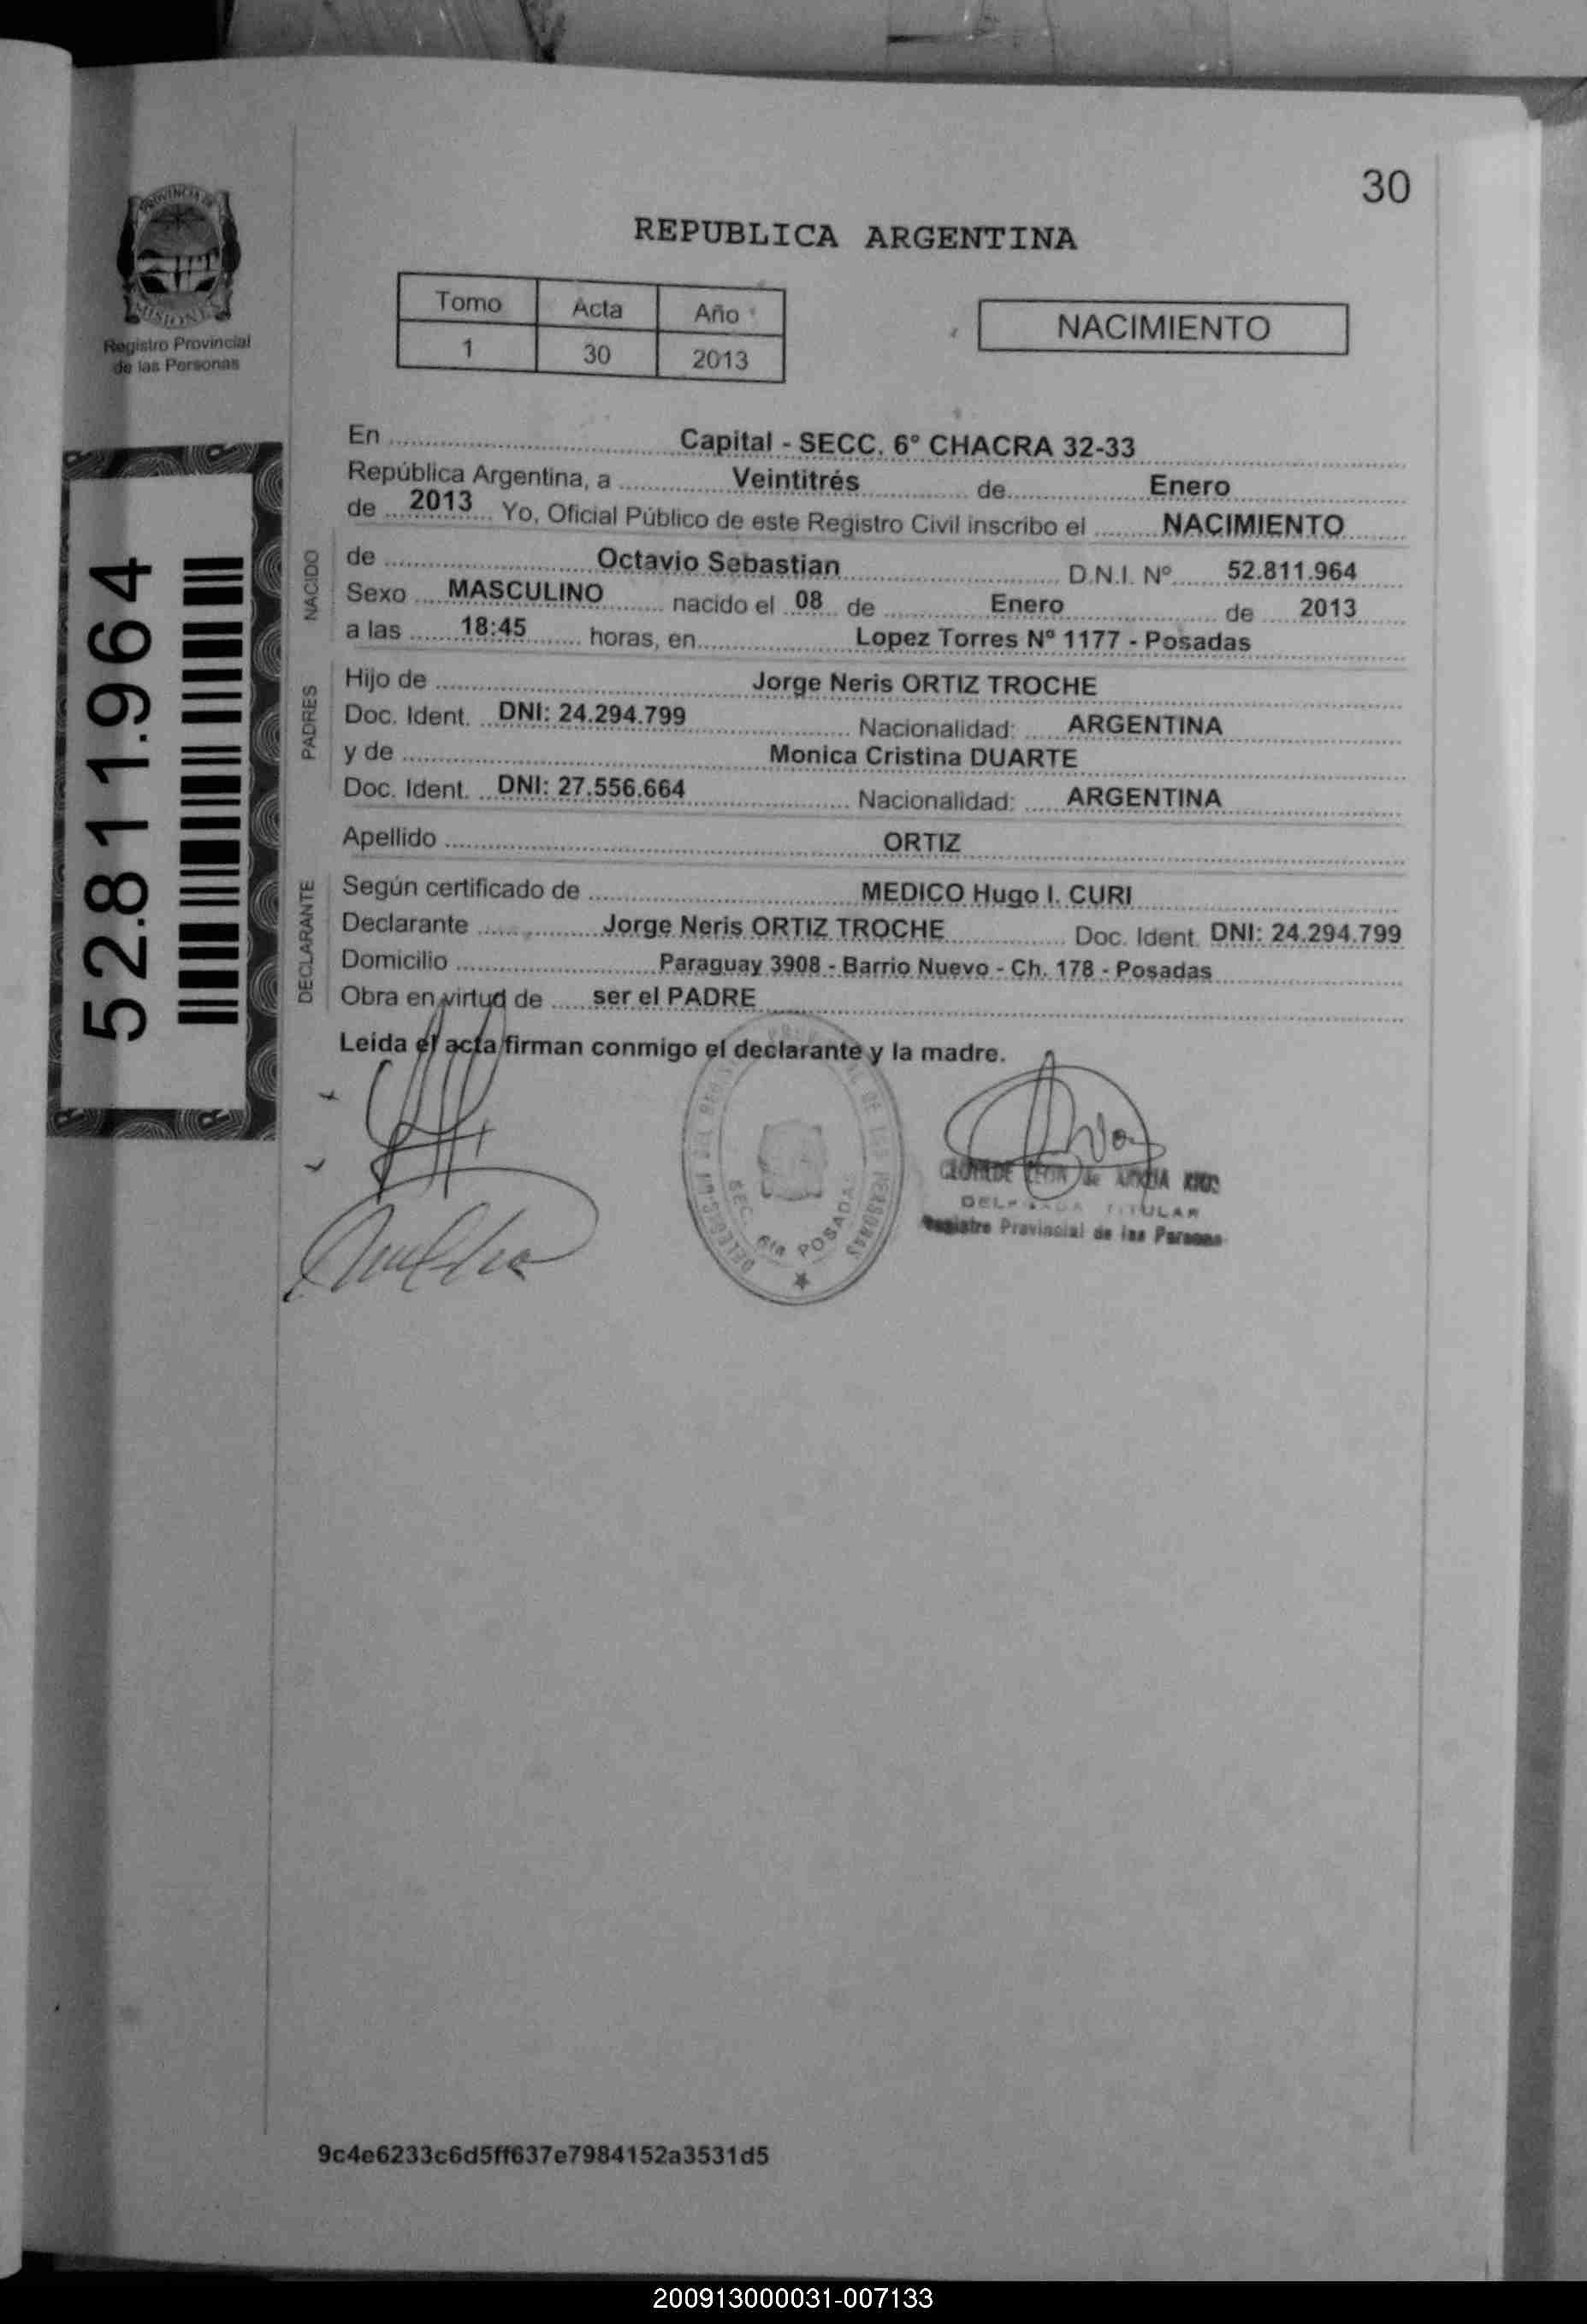 30
PROVINCIA DE
MISIONES
Registro Provincial
de las Personas
REPUBLICA ARGENTINA
Tomo Acta Año
1 30 2013
NACIMIENTO
52.811.964
En Capital - SECC. 6° CHACRA 32-33
República Argentina, a Veintitrés de Enero
de 2013 Yo, Oficial Público de este Registro Civil inscribo el NACIMIENTO
NACIDO
de Octavio Sebastian D.N.I. Nº 52.811.964
Sexo MASCULINO nacido el 08 de Enero de 2013
a las 18:45 horas, en Lopez Torres Nº 1177 - Posadas
PADRES
Hijo de Jorge Neris ORTIZ TROCHE
Doc. Ident. DNI: 24.294.799 Nacionalidad: ARGENTINA
y de Monica Cristina DUARTE
Doc. Ident. DNI: 27.556.664 Nacionalidad: ARGENTINA
Apellido ORTIZ
DECLARANTE
Según certificado de MEDICO Hugo I. CURI
Declarante Jorge Neris ORTIZ TROCHE Doc. Ident. DNI: 24.294.799
Domicilio Paraguay 3908 - Barrio Nuevo - Ch. 178 - Posadas
Obra en virtud de ser el PADRE
Leida el acta firman conmigo el declarante y la madre.
DE LAS PERSONAS
SEC. 6ta POSADAS
de
TITULAR
Registro Provincial de las Personas
9c4e6233c6d5ff637e7984152a3531d5
200913000031-007133